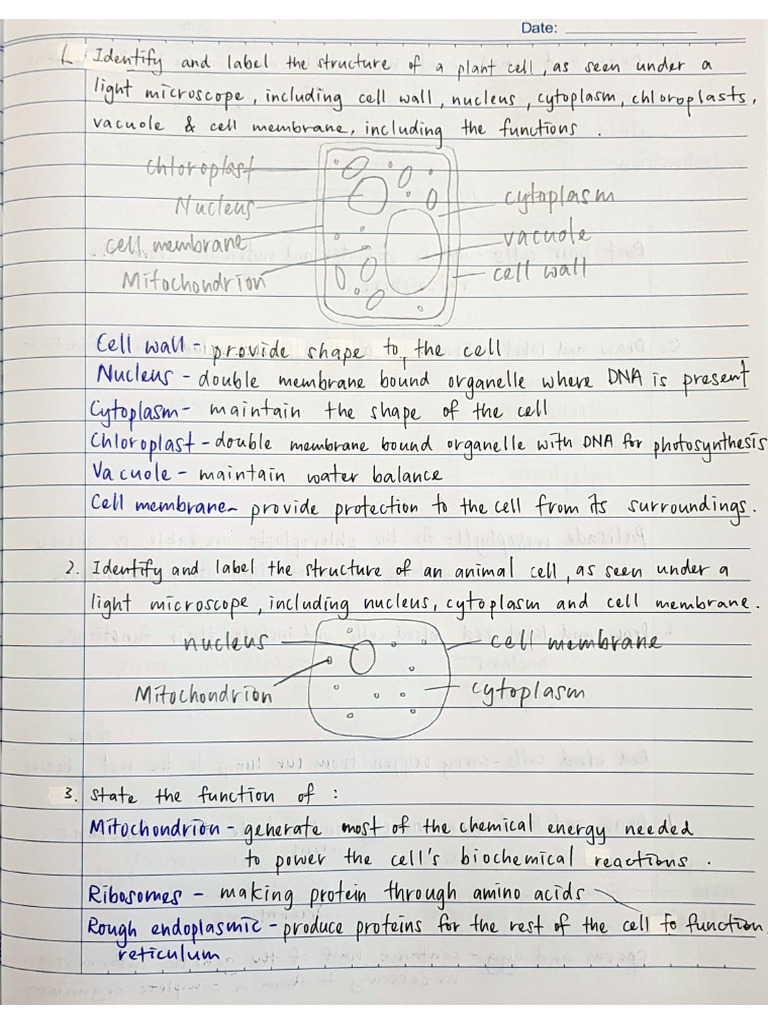 Date:
1. Identify and label the structure of a plant cell, as seen under a
light microscope, including cell wall, nucleus, cytoplasm, chloroplasts,
vacuole & cell membrane, including the functions.
chloroplast
Nucleus
cell membrane
Mitochondrion
cytoplasm
vacuole
cell wall
Cell wall - provide shape to the cell
Nucleus - double membrane bound organelle where DNA is present
Cytoplasm - maintain the shape of the cell
Chloroplast - double membrane bound organelle with DNA for photosynthesis
Vacuole - maintain water balance
Cell membrane - provide protection to the cell from its surroundings.
2. Identify and label the structure of an animal cell, as seen under a
light microscope, including nucleus, cytoplasm and cell membrane.
nucleus
Mitochondrion
cell membrane
cytoplasm
3. State the function of :
Mitochondrion - generate most of the chemical energy needed
to power the cell's biochemical reactions.
Ribosomes - making protein through amino acids
Rough endoplasmic - produce proteins for the rest of the cell to function
reticulum